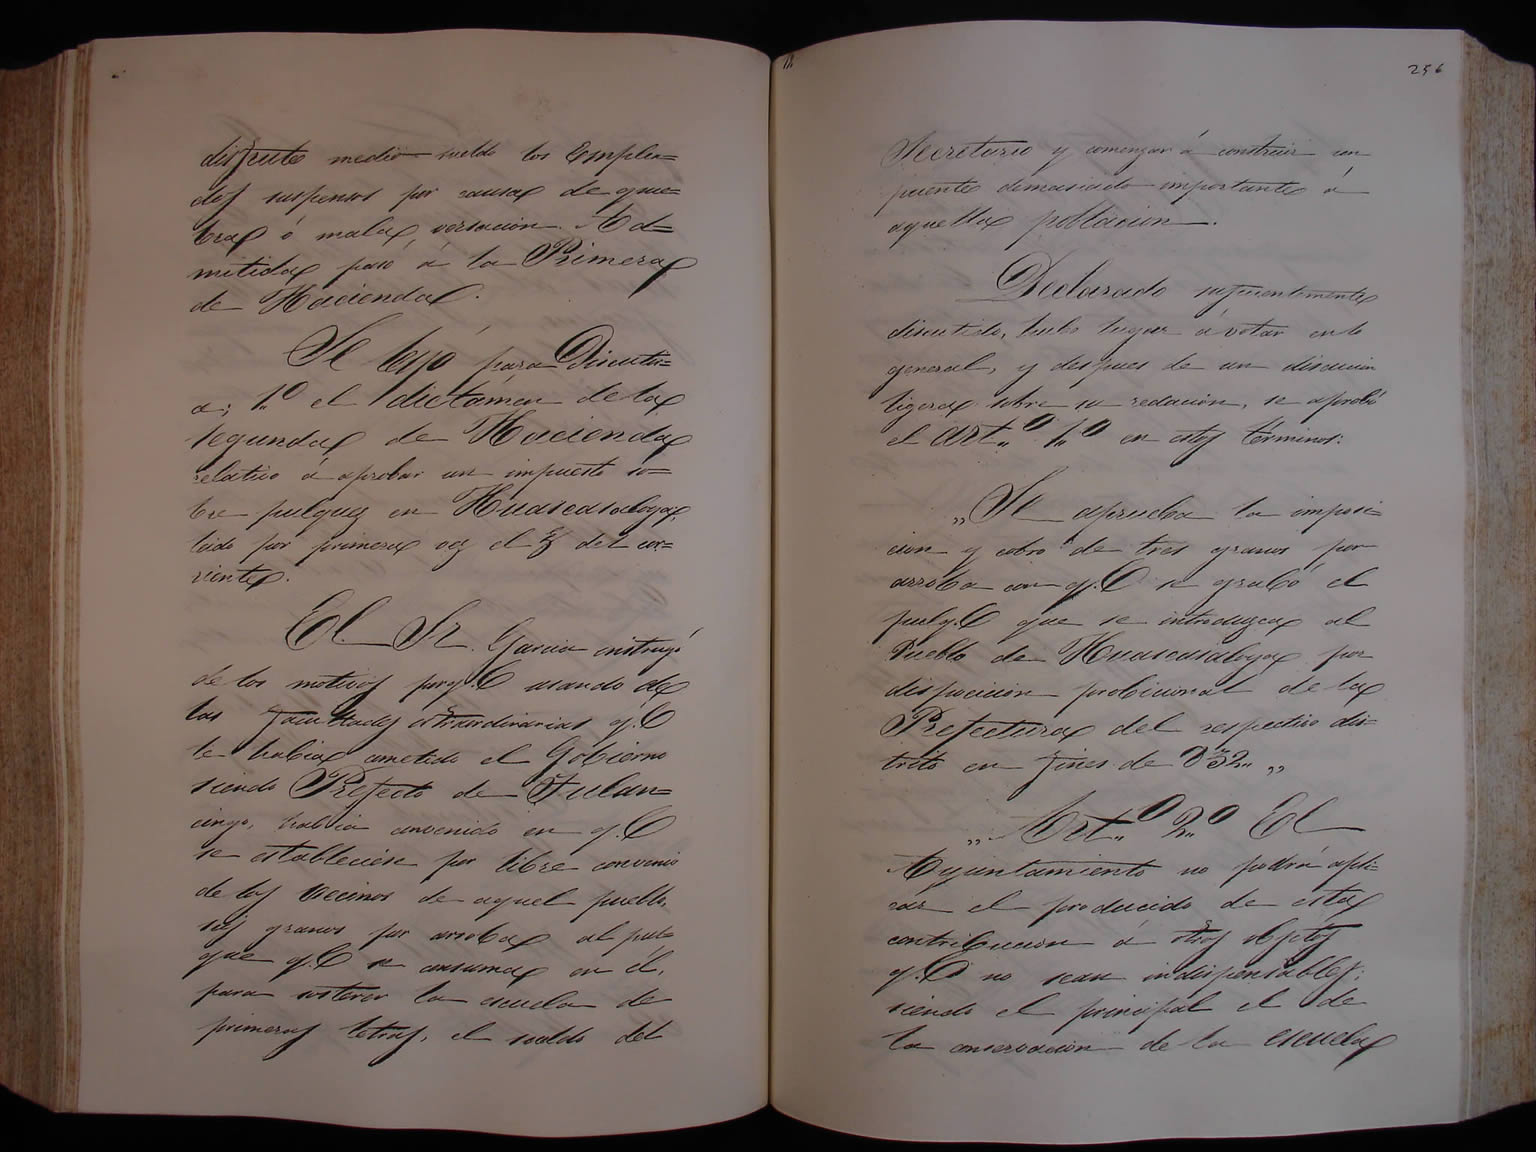 disfrute medio sueldo los Emplea=
dos suspensos por causa de que=
bra ó mala versacion. Ad=
mitida pasó á la Primera
de Hacienda.
Se leyó para Discutir=
a; 1.º el dictámen de la
segunda de Hacienda
relativo á aprobar un impuesto so=
bre pulque en Huascasaloya,
leido por primera vez el del cor=
riente.
El Sr. Garcia instruyó
de los motivos porq.e usando de
las facultades estraordinarias q.e
le habia cometido el Gobierno
siendo Prefecto de Tulan=
cingo, habia convenido en q.e
se estableciese por libre convenio
de los vecinos de aquel pueblo,
seis granos por arroba al pul=
que q.e se consuma en él,
para sostener la escuela de
primeras letras, el sueldo del
256
Secretario y comenzar á construir un
puente demasiado importante á
aquella poblacion.
Declarado suficientemente
discutido, hubo lugar á votar en lo
general, y despues de un discusion
ligera sobre su redacion, se aprobó
el Art.º 1.º en estos términos:
„Se aprueba la imposi=
cion y cobro de tres granos por
arroba con q.e se grabó el
pulq.e que se introduzca al
Pueblo de Huascasaloya por
disposicion probicional de la
Prefectura del respectivo dis=
trito en fines de 832.„
„Art.º 2.º El
Ayuntamiento no podrá apli=
car el producido de esta
contribucion á otros objetos
q.e no sean indispensables;
siendo el principal el de
la conservacion de la escuela